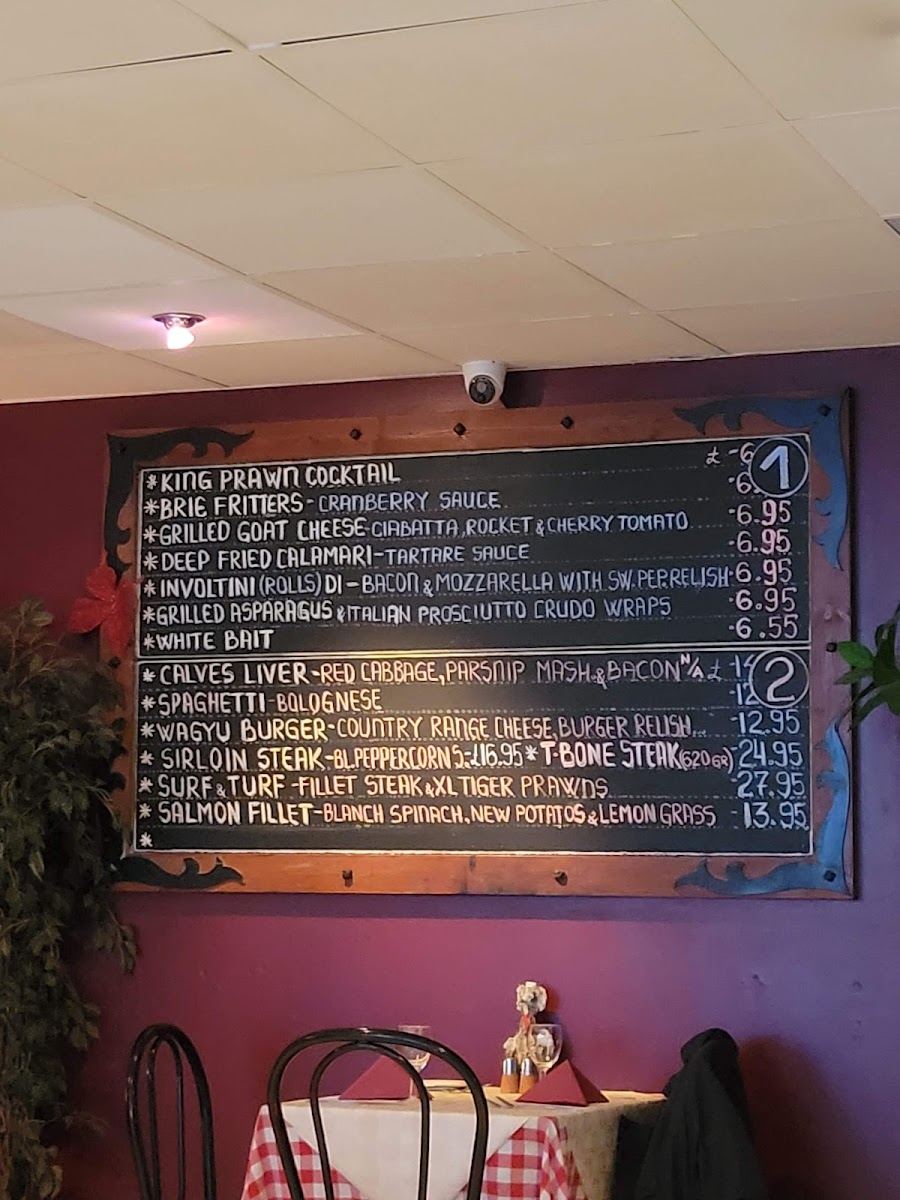 *KING PRAWN COCKTAIL £ -6 1
*BRIE FRITTERS - CRANBERRY SAUCE -6.
*GRILLED GOAT CHEESE-CIABATTA, ROCKET & CHERRY TOMATO -6.95
*DEEP FRIED CALAMARI-TARTARE SAUCE -6.95
*INVOLTINI (ROLLS) DI - BACON & MOZZARELLA WITH SW. PEP. RELISH -6.95
*GRILLED ASPARAGUS & ITALIAN PROSCIUTTO CRUDO WRAPS -6.95
*WHITE BAIT -6.55
* CALVES LIVER-RED CABBAGE, PARSNIP MASH & BACON N/A £ -14 2
*SPAGHETTI-BOLOGNESE -12
*WAGYU BURGER-COUNTRY RANGE CHEESE, BURGER RELISH... -12.95
* SIRLOIN STEAK-BL.PEPPERCORN S.-£16.95 * T-BONE STEAK (620GR) -24.95
* SURF & TURF - FILLET STEAK & XL TIGER PRAWNS 27.95
* SALMON FILLET-BLANCH SPINACH, NEW POTATOS & LEMON GRASS -13.95
*